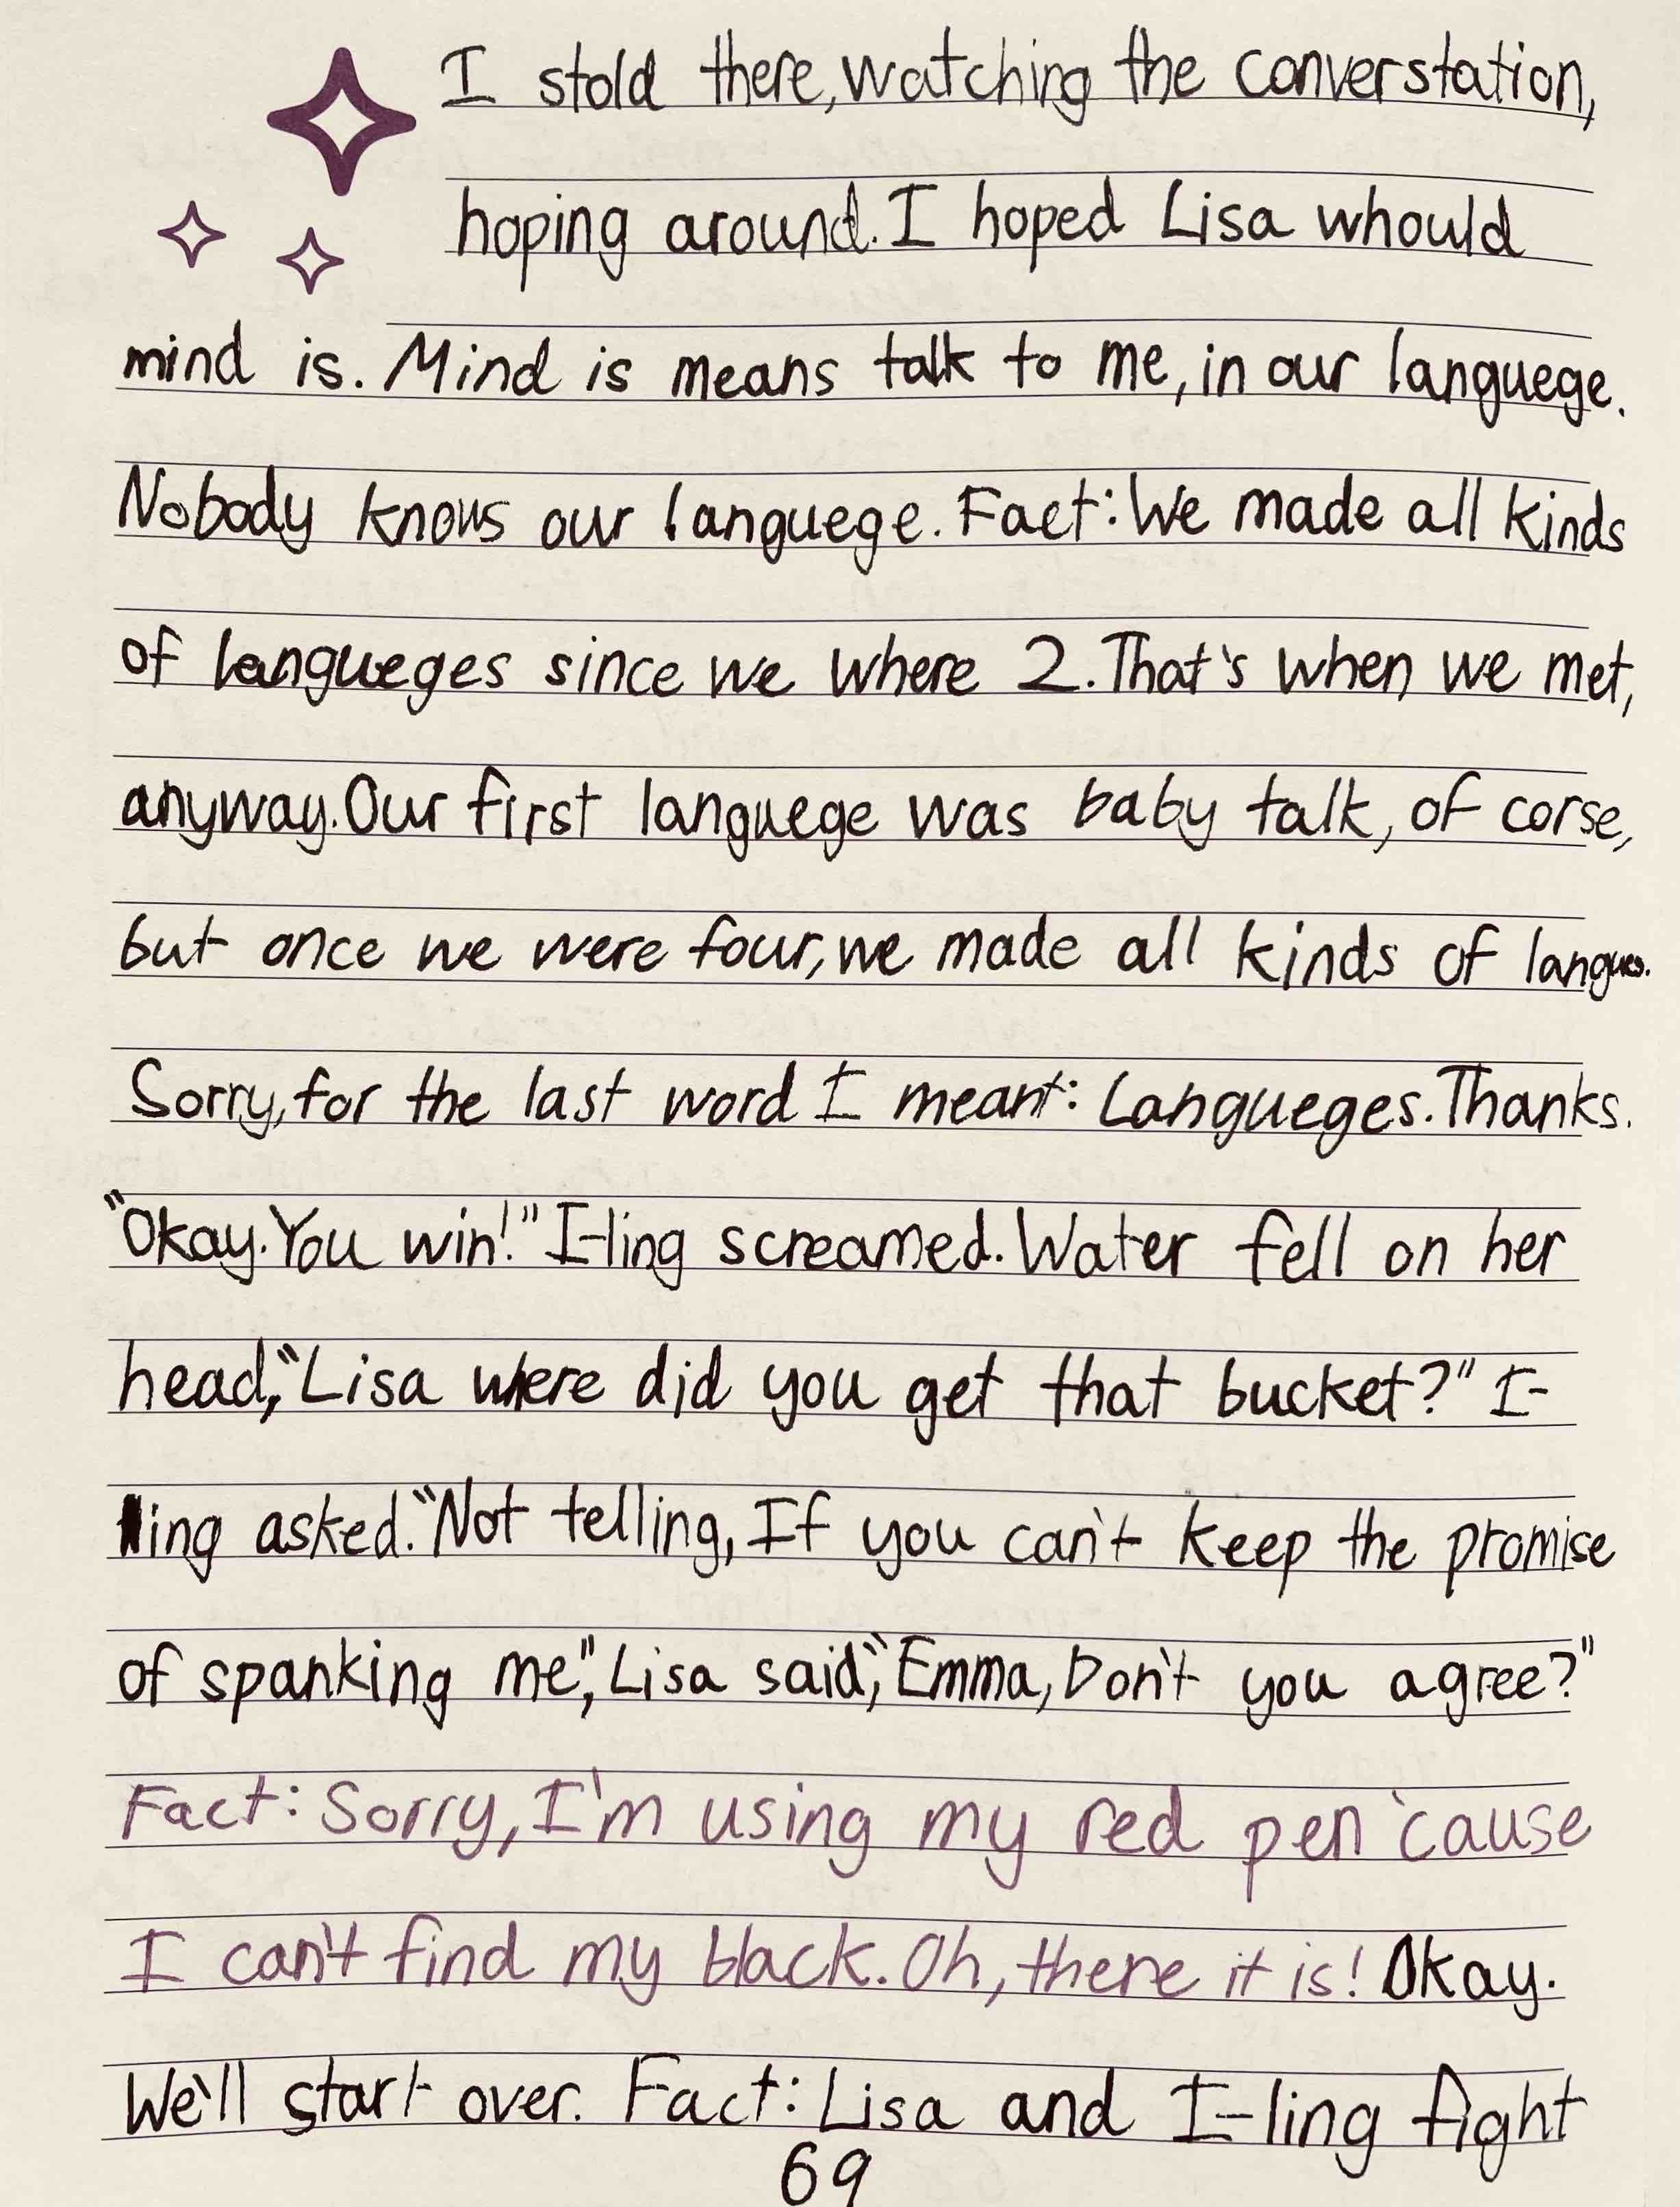 I stold there, watching the converstation,
hoping around. I hoped Lisa whould
mind is. Mind is means talk to me, in our languege.
Nobody knows our languege. Fact: We made all kinds
of langueges since we where 2. That's when we met,
anyway. Our first languege was baby talk, of corse,
but once we were four, we made all kinds of langues.
Sorry, for the last word I meant: Langueges. Thanks.
"Okay. You win!" I-ling screamed. Water fell on her
head, "Lisa where did you get that bucket?" I-
ling asked. "Not telling, If you can't keep the promise
of spanking me", Lisa said, "Emma, Don't you agree?"
Fact: Sorry, I'm using my red pen 'cause
I can't find my black. Oh, there it is! Okay.
We'll start over. Fact: Lisa and I-ling fight
69